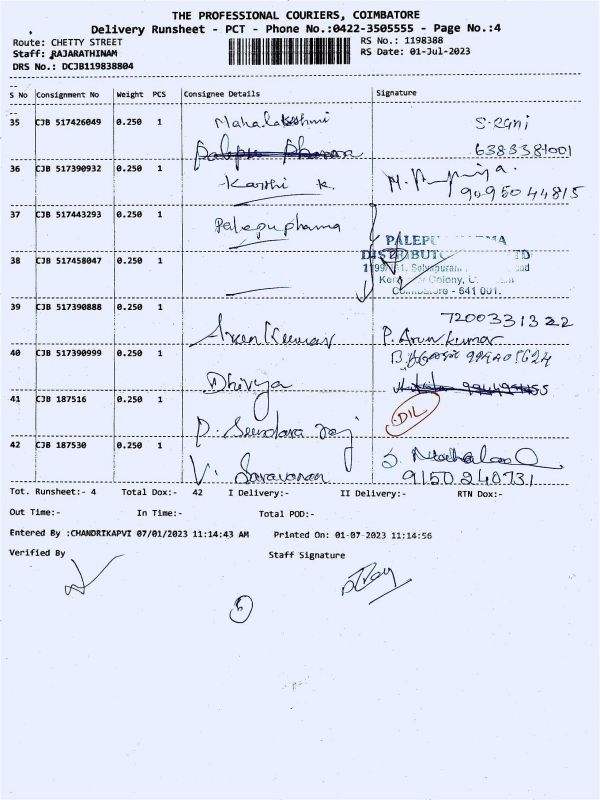 THE PROFESSIONAL COURIERS, COIMBATORE
Delivery Runsheet - PCT - Phone No.:0422-3505555 - Page No.:4
Route: CHETTY STREET
RS No.: 1198388
Staff: RAJARATHINAM
RS Date: 01-Jul-2023
DRS No.: DCJB119838804
S No Consignment No Weight PCS Consignee Details Signature
35 CJB 517426049 0.250 1 Mahalakshmi S. Rani
6383381001
36 CJB 517390932 0.250 1 Karthi K. 9095044815
37 CJB 517443293 0.250 1 Palepu pharma
PALEPU
38 CJB 517458047 0.250 1
Colony,
641 001.
39 CJB 517390888 0.250 1 Arun Kumar 7200331322
P. Arun kumar
40 CJB 517390999 0.250 1 Dhivya
41 CJB 187516 0.250 1 P. Sundara raj DIL
42 CJB 187530 0.250 1 V. Saravanan
9150240731
Tot. Runsheet:- 4 Total Dox:- 42 I Delivery:- II Delivery:- RTN Dox:-
Out Time:- In Time:- Total POD:-
Entered By :CHANDRIKAPVI 07/01/2023 11:14:43 AM Printed On: 01-07-2023 11:14:56
Verified By Staff Signature